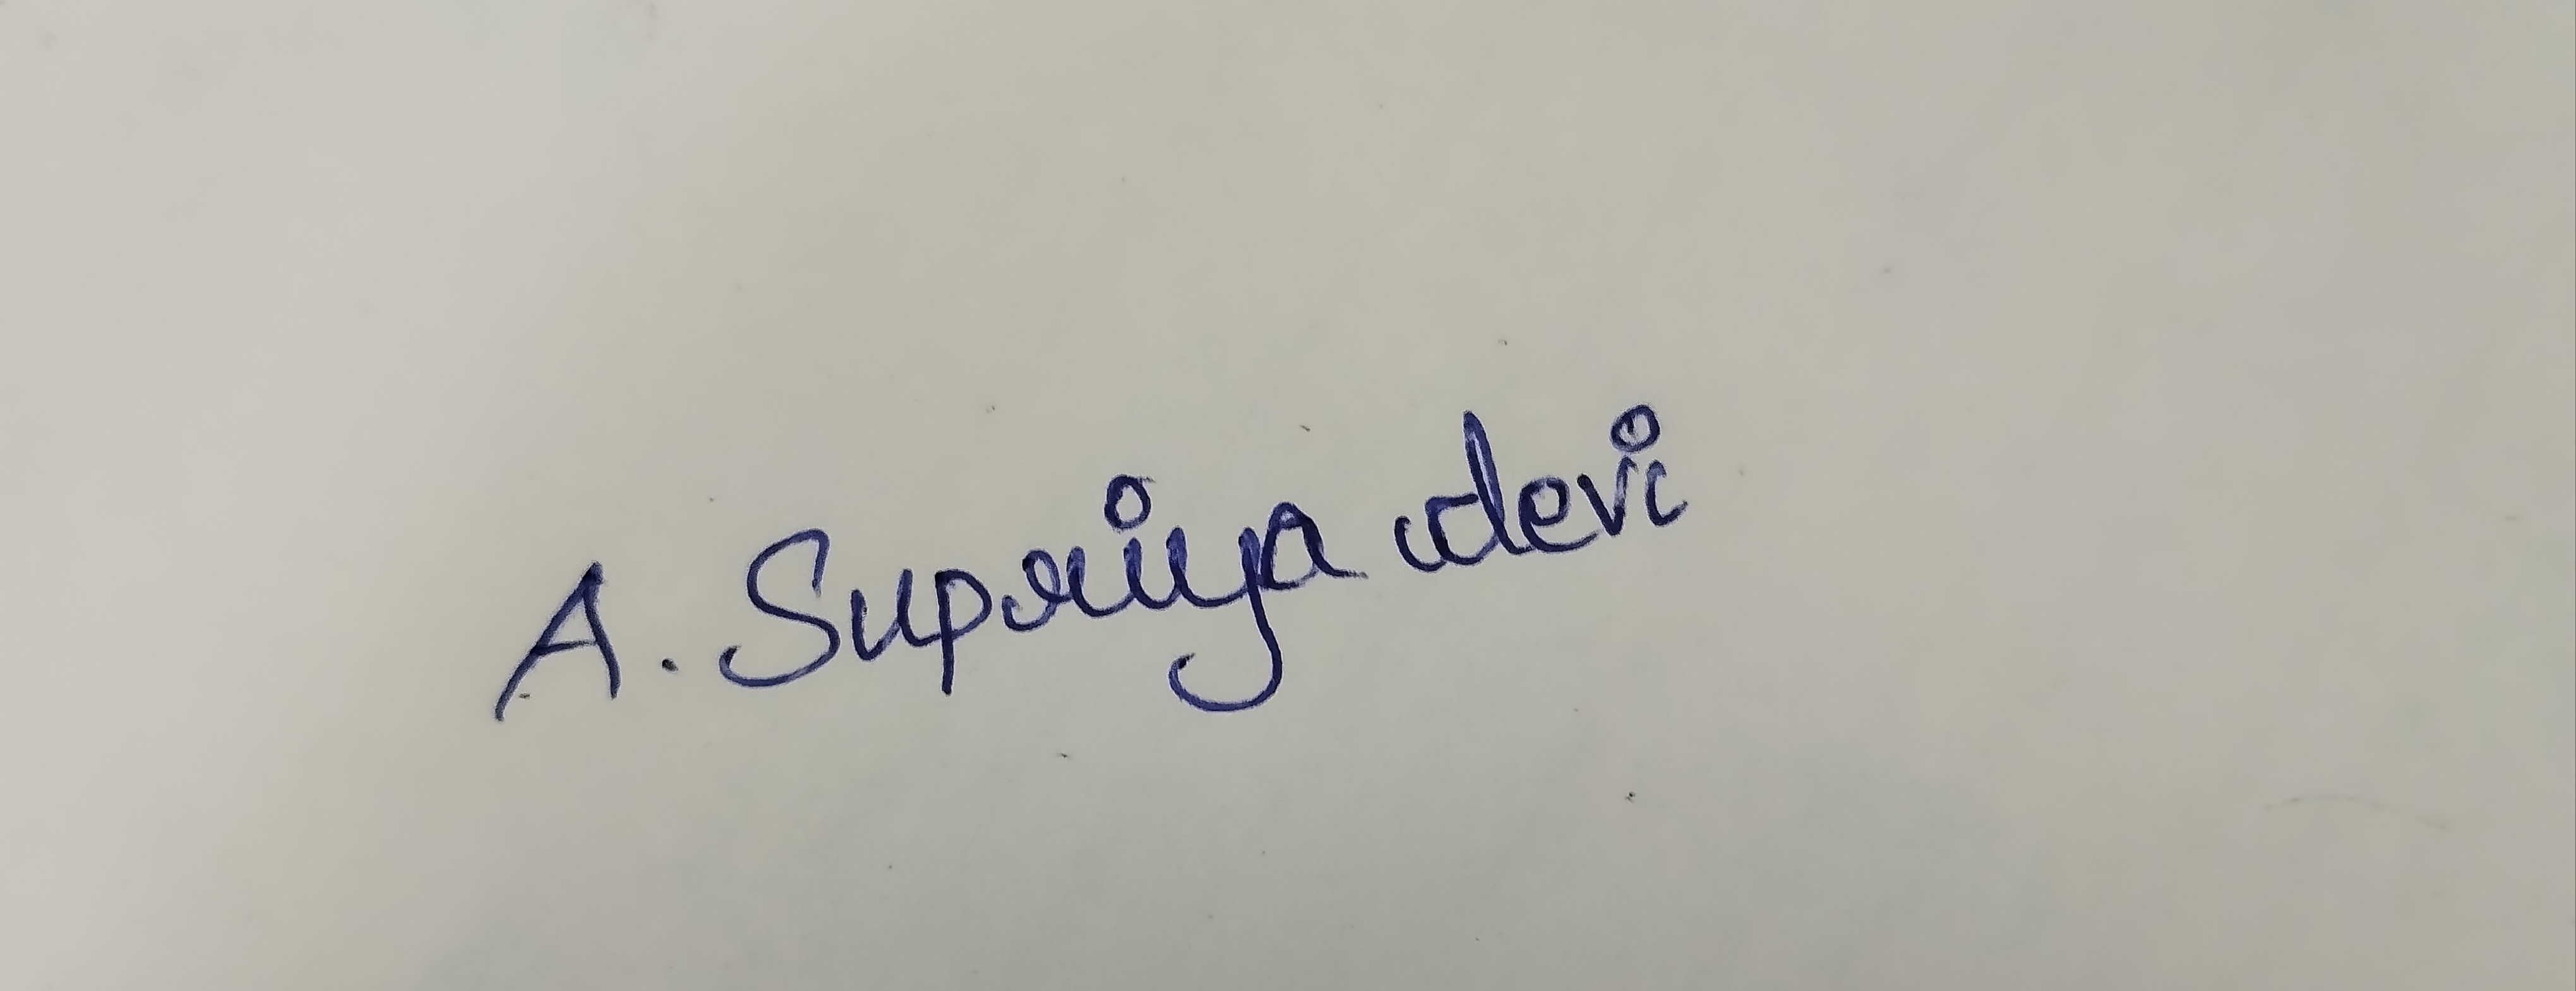 A. Supriya devi